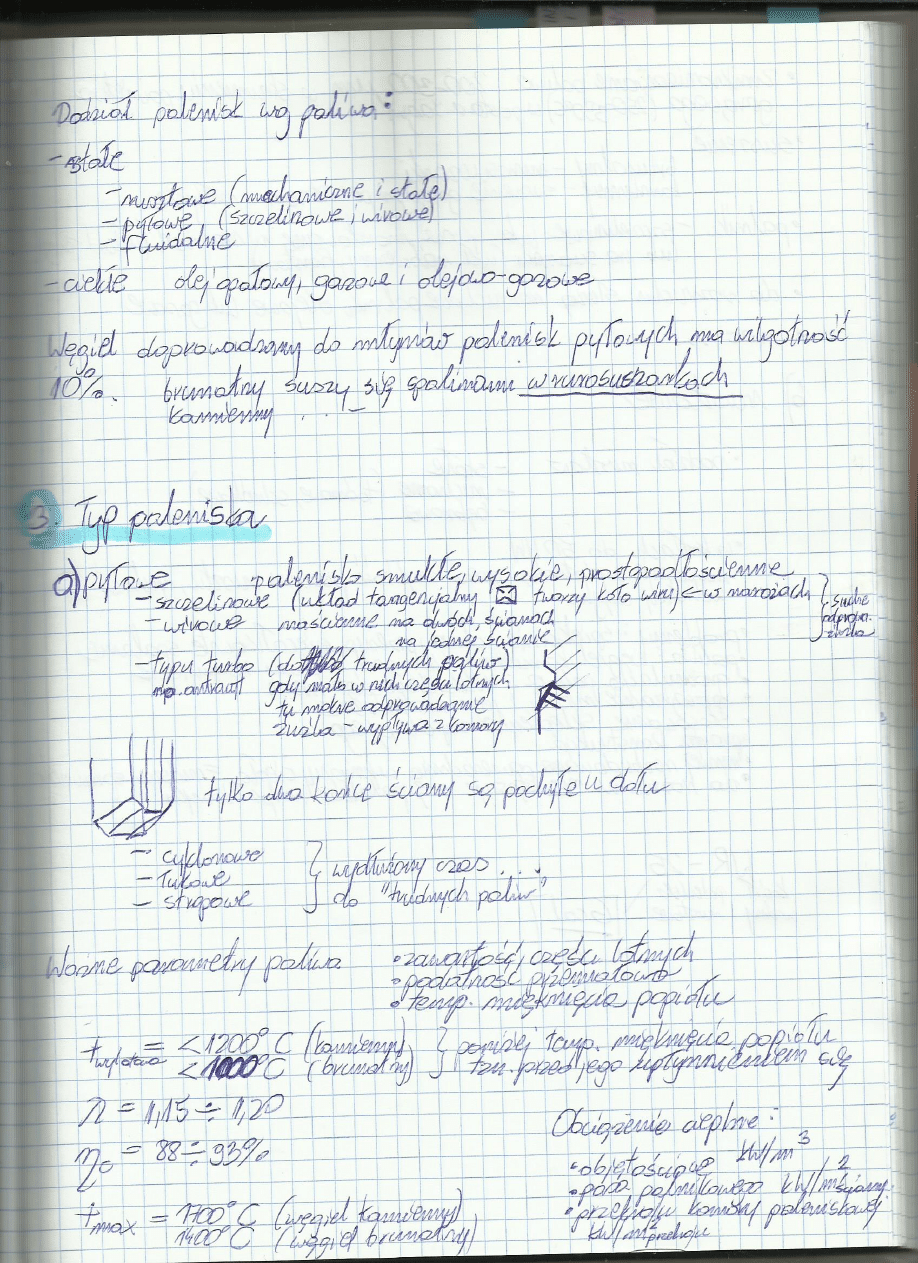 Podział palenisk wg paliwa:
- stałe
- rusztowe (mechaniczne i stałe)
- pyłowe (szczelinowe, wirowe)
- fluidalne
- ciekłe olej opałowy, gazowe i olejowo-gazowe
Węgiel doprowadzony do młynów palenisk pyłowych ma wilgotność
10%. brunatny suszy się spalinami w rurosuszarkach
kamienny . . . –
3. Typ paleniska
a) pyłowe palenisko smukłe, wysokie, prostopadłościenne
- szczelinowe (układ tangencjalny tworzy koło wiruj ← w narożach
- wirowe naścienne na dwóch ścianach
na jednej ścianie
} suche
odprowa.
żużla
- typu turbo (do trudnych paliw)
np. antracyt gdy mało w nich części lotnych
tu mokre odprowadzanie
żużla – wypływa z komory
tylko dwa końce ściany są pochyłe u dołu
- cyklonowe
- łukowe
- stropowe
} wydłużony czas . . . .
do "trudnych paliw"
Ważne parametry paliwa
• zawartość części lotnych
• podatność przemiałowa
• temp. mięknięcia popiołu
t wylotowa = < 1200°C (kamienny)
< 1000°C (brunatny)
} poniżej temp. mięknięcia popiołu
tzn. przed jego upłynnieniem się
λ = 1,15 ÷ 1,20
η = 88 ÷ 93%
t max = 1700°C (węgiel kamienny)
1400°C (węgiel brunatny)
Obciążenie cieplne:
• objętościowe kW/m³
• pasa palnikowego kW/m² ściany
• przekroju komory paleniskowej
kW/m² przekroju